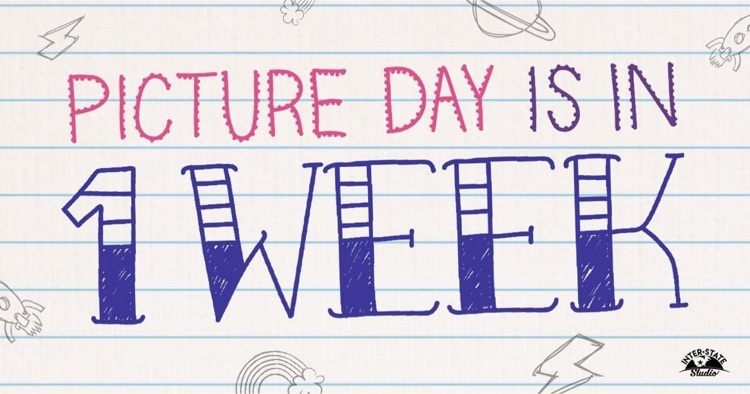 PICTURE DAY IS IN
1 WEEK
INTER-STATE
Studio